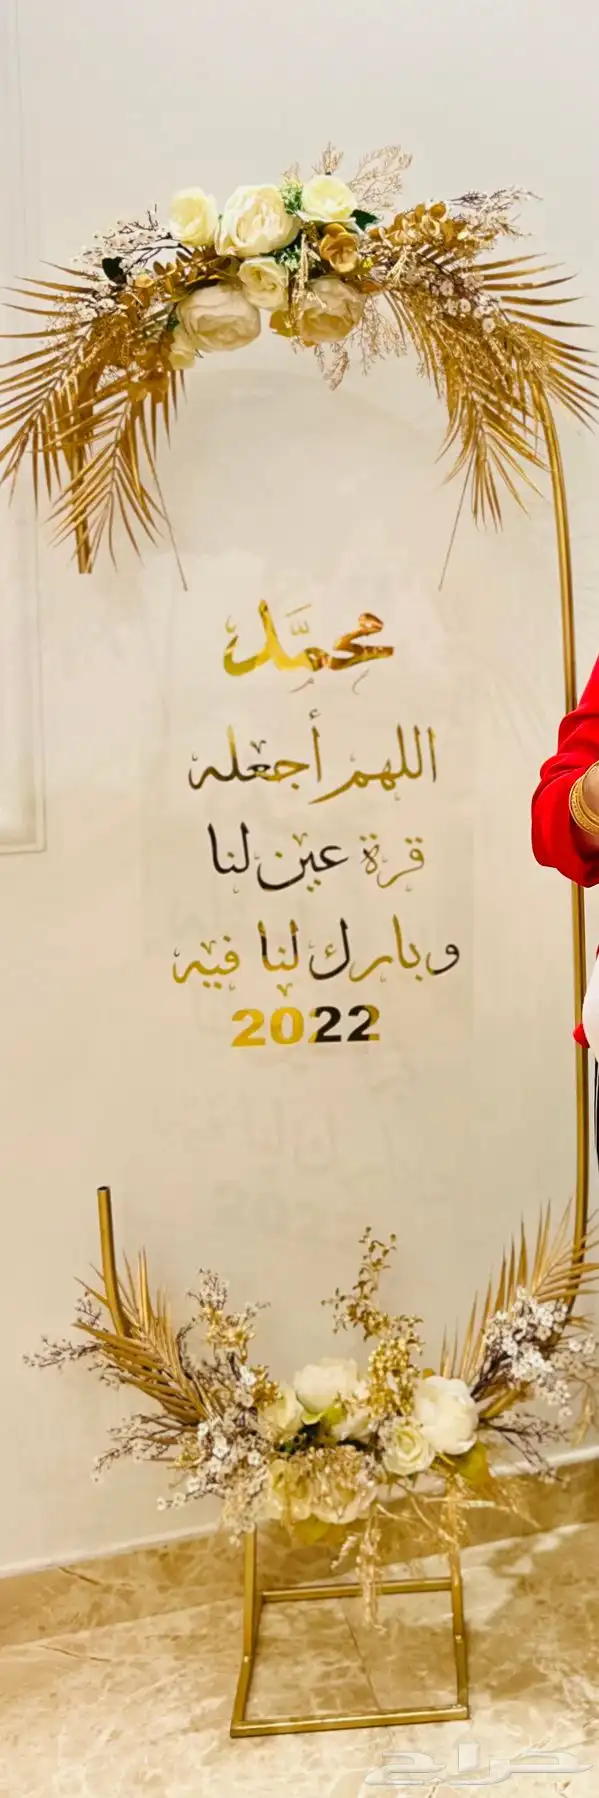 محمد
اللهم أجعله
قرة عين لنا
وبارك لنا فيه
2022
حراج